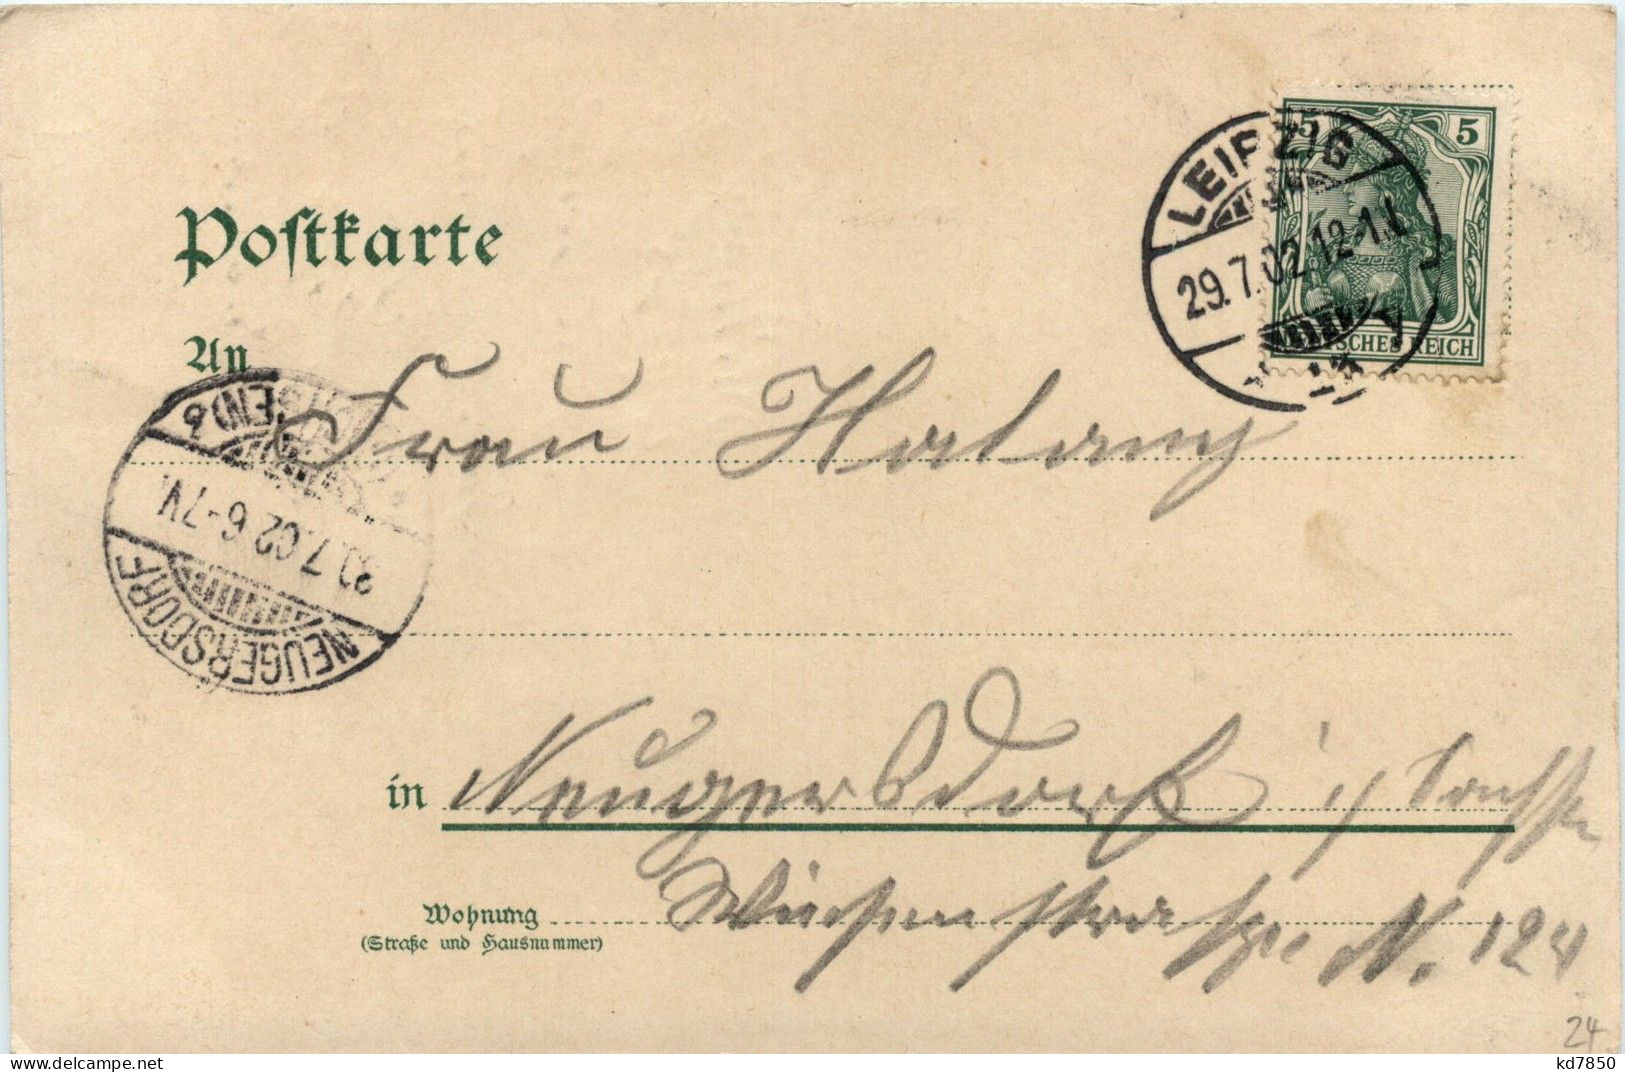 5 5
LEIPZIG
29.7.02.12-1.
DEUTSCHES REICH
Postkarte
An Frau
NEUGERSDORF
7.02 6-7V.
(SACHSEN)
in Neugersdorf i/ Sachsen
Wohnung
(Straße und Hausnummer)
N. 124
24
delcampe.net
kd7850